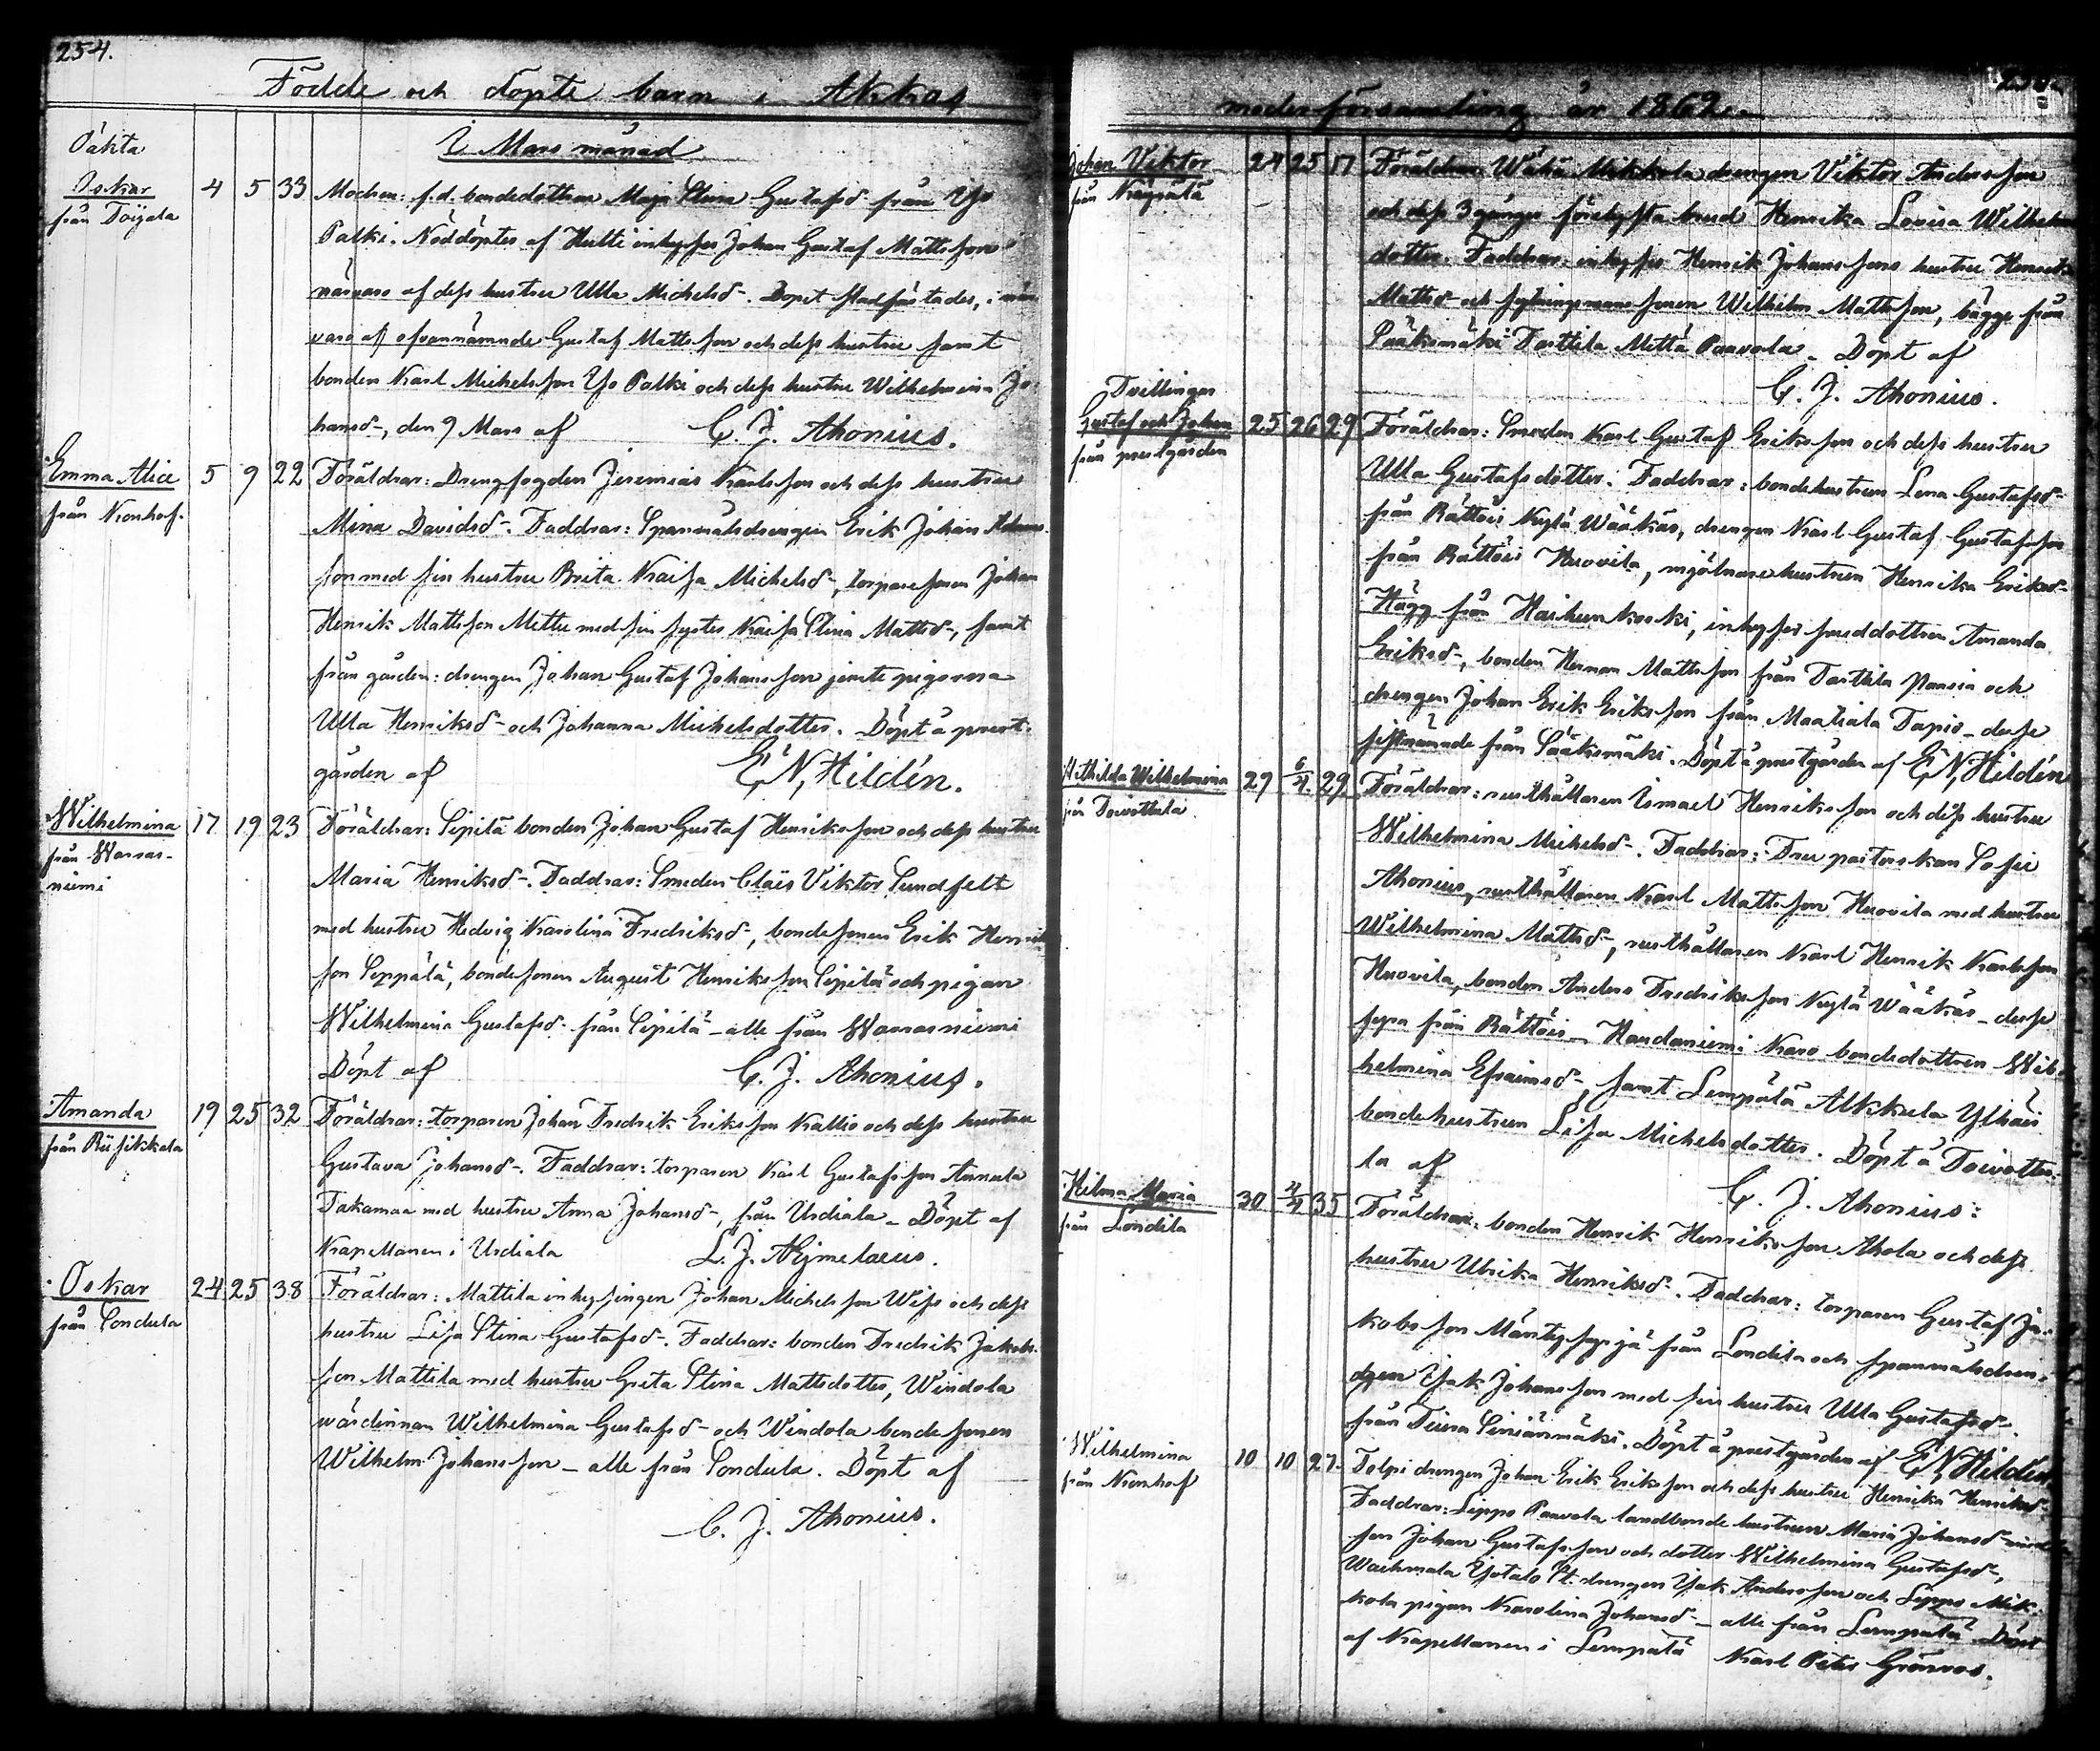 254.
Födde och döpte barn i Akkas
I Mars månad
Oäkta
Oskar 4 5 33 Modren: f.d. bondedottren Maja Stina Gustafsd från Yso
från Toijala
Palki. Nöddöptes af Hutti inhyses Johan Gustaf Mattsson i
närvaro af dess hustru Ulla Michelsd-. Dopet stadfästades, i när
varo af ofvannämnde Gustaf Mattsson och dess hustru samt
bonden Karl Michelsson Yso Palki och dess hustru Wilhelmina Jo-
hansd-, den 9 Mars af C. J. Ahonius.
Emma Alice 5 9 22 Föräldrar: Drengfogden Jeremias Karlsson och dess hustru
från Kronhof.
Mina Davidsd-. Faddrar: Spanmålsdrengen Erik Johan
son med sin hustru Brita Kaisa Michelsd-, torparesonen Johan
Henrik Mattsson Mettu med sin syster Kaisa Stina Mattsd-, samt
från gården: drengen Johan Gustaf Johansson jemte pigorna
Ulla Henriksd- och Johanna Michelsdotter. Döpt å prest-
gården af E N, Hildén.
Wilhelmina 17 19 23 Föräldrar: Sipilä bonden Johan Gustaf Henriksson och dess hustru
från Warras-
niemi
Maria Henriksd-. Faddrar: Smeden Claës Viktor Sundfelt
med hustru Hedvig Karolina Fredriksd-, bondesonen Erik Henrik
son Seppälä, bondesonen August Henriksson Sipilä och pigan
Wilhelmina Gustafsd- från Sipilä - alle från Warrasniemi
Döpt af C. J. Ahonius.
Amanda 19 25 32 Föräldrar: torparen Johan Fredrik Eriksson Kallio och dess hustru
från Riisikkala
Gustava Johansd-. Faddrar: torparen Karl Gustafsson Annula
Takamaa med hustru Anna Johansd-, från Urdiala - Döpt af
Kapellanen i Urdiala L. J. Ahjmelaeus.
Oskar 24 25 38 Föräldrar: Mattila inhysingen Johan Michelsson Wiss och dess
från Sondula
hustru Lisa Stina Gustafsd-. Faddrar: bonden Fredrik Jakobs-
son Mattila med hustru Greta Stina Mattsdotter, Windola
wärdinnan Wilhelmina Gustafsd- och Windola bondesonen
Wilhelm Johansson - alle från Sondula. Döpt af
C. J. Ahonius.
moderförsamling år 1862.
Johan Viktor 24 25 17 Föräldrar: Wähä Mikkola drengen Viktor Andersson
från
och dess 3 gånger förelysta brud Henrika Lovisa Wilhelms
dotter. Faddrar: inhyses Henrik Johanssons hustru Henrika
Mattsd- och sytningsmans sonen Wilhelm Mattsson, bägge från
Sääksmäki Tarttila Mettä Paavola - Döpt af
C. J. Ahonius.
Tvillingar
Gustaf och Johan 25 26 29 Föräldrar: Smeden Karl Gustaf Eriksson och dess hustru
från prestgården
Ulla Gustafsdotter. Faddrar: bondehustrun Lena Gustafsd-
från Rättöis Nygtä Wääkäs, drengen Karl Gustaf Gustafsson
från Rättöis Huovila, mjölnarehustrun Henrika Eriksd-
Hägg från Haihunkoski, inhyses smeddottren Amanda
Eriksd-, bonden Herman Mattsson från Tarttila Paasia och
drengen Johan Erik Eriksson från Maatiala Tapio - desse
sistnämnde från Sääksmäki. Döpt å prestgården af E N, Hildén
Mathilda Wilhelmina 29 6/4 29 Föräldrar: rusthållaren Ismael Henriksson och dess hustru
från Toivottula
Wilhelmina Michelsd-. Faddrar: Fru pastorskan Sofie
Ahonius, rusthållaren Karl Mattsson Huovila med hustru
Wilhelmina Mattsd-, rusthållaren Karl Henrik Karlsson
Huovila, bonden Anders Fredriksson Nygtä Wääkäs - desse
fyra från Rättöis - Haudaniemi Karo bondedottren Wil-
helmina Efraimsd-, samt Lempälä Alkkula Ylhäis
bondehustrun Lisa Michelsdotter. Döpt å Toivottu-
la af C. J. Ahonius.
Hilma Maria 30 4/4 35 Föräldrar: bonden Henrik Henriksson Ahola och dess
från Londila
hustru Ulrika Henriksd-. Faddrar: torparen Gustaf Ja-
kobsson Mäntysyrjä från Londila och spanmålsdren-
gen Isak Johansson med sin hustru Ulla Gustafsd-
från Terra Sinisänmäki. Döpt å prestgården af E N, Hildén
Wilhelmina 10 10 27. Tolpi drengen Johan Erik Eriksson och dess hustru Henrika Henriksd-
från Kronhof
Faddrar: Lippo Paavola landbonde hustrun Maria Johansd-
son Johan Gustafsson och dotter Wilhelmina Gustafsd-,
drengen Isak Andersson och Lippo Mik-
kola pigan Karolina Johansd- - alle från Lempälä Döpt
af Kapellanen i Lempälä Karl Peter Grönroos.